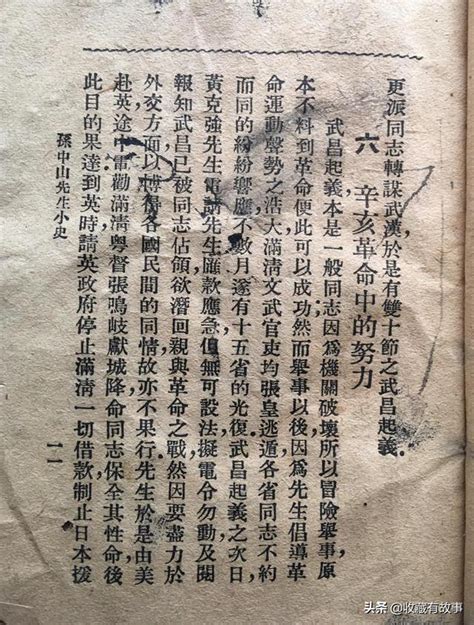 更派同志轉謀武漢,於是有雙十節之武昌起義.
六 辛亥革命中的努力
武昌起義本是一般同志因為機關破壞所以冒險舉事原
本不料到革命便此可以成功然而舉事以後因為先生倡導革
命運動聲勢之浩大滿清文武官吏均張皇逃遁各省同志不約
而同的紛紛響應不數月遂有十五省的光復.武昌起義之次日,
黃克強先生電請先生匯款應急但無可設法擬電令勿動及閱
報知武昌已被同志佔領欲潛回親與革命之戰然因要盡力於
外交方面以博得各國民間的同情故亦不果行.先生於是由美
赴英途中電勸滿清粵督張鳴岐獻城降命同志保全其性命後
此目的果達到英時請英政府停止滿清一切借款制止日本援
孫中山先生小史
一一
头条 @收藏有故事